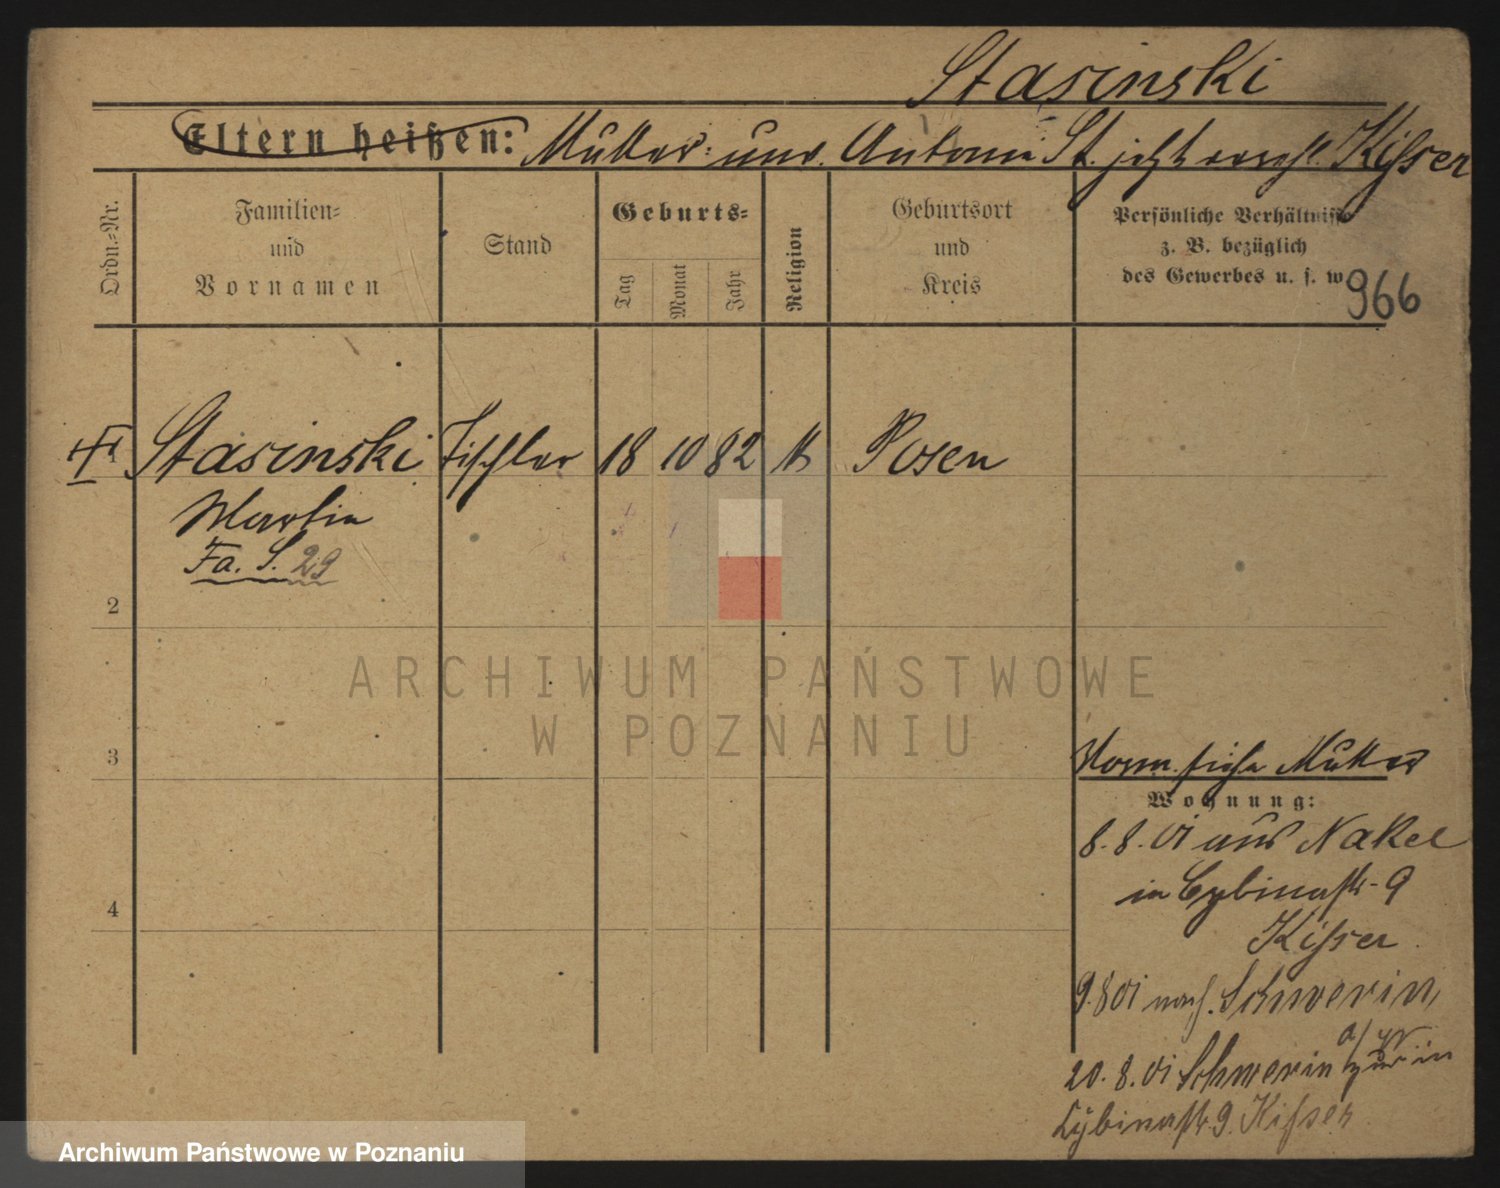 Stasinski
Eltern heißen: Mutter: unv. Antonie St. jetzt vereh. Kisser
Ordn.-Nr.
Familien-
und
Vornamen
Stand
Geburts-
Tag
Monat
Jahr
Religion
Geburtsort
und
Kreis
Persönliche Verhältnisse
z. B. bezüglich
des Gewerbes u. s. w.
966
Stasinski Tischler 18 10 82 k Posen
Martin
Fa. S. 29
2
3
4
Vorm. siehe Mutter
Wohnung:
8.8.01 aus Nakel
in Cybinastr. 9
Kisser
9.8.01 nach Schwerin
a/W
20.8.01 Schwerin zur in
Cybinastr. 9. Kisser
ARCHIWUM PAŃSTWOWE
W POZNANIU
Archiwum Państwowe w Poznaniu